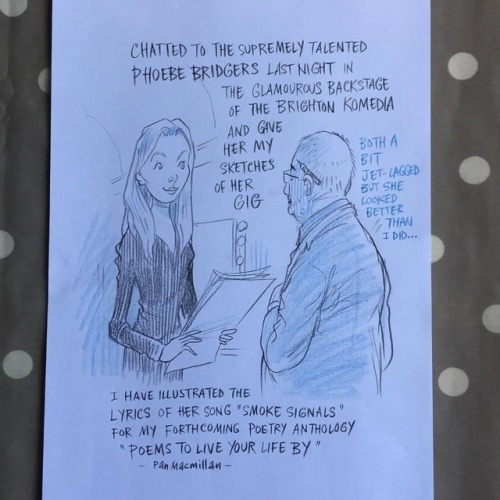 CHATTED TO THE SUPREMELY TALENTED
PHOEBE BRIDGERS LAST NIGHT IN
THE GLAMOUROUS BACKSTAGE
OF THE BRIGHTON KOMEDIA
AND GAVE
HER MY
SKETCHES
OF HER
GIG
BOTH A
BIT
JET-LAGGED
BUT SHE
LOOKED
BETTER
THAN
I DID...
I HAVE ILLUSTRATED THE
LYRICS OF HER SONG "SMOKE SIGNALS"
FOR MY FORTHCOMING POETRY ANTHOLOGY
"POEMS TO LIVE YOUR LIFE BY"
- Pan Macmillan -